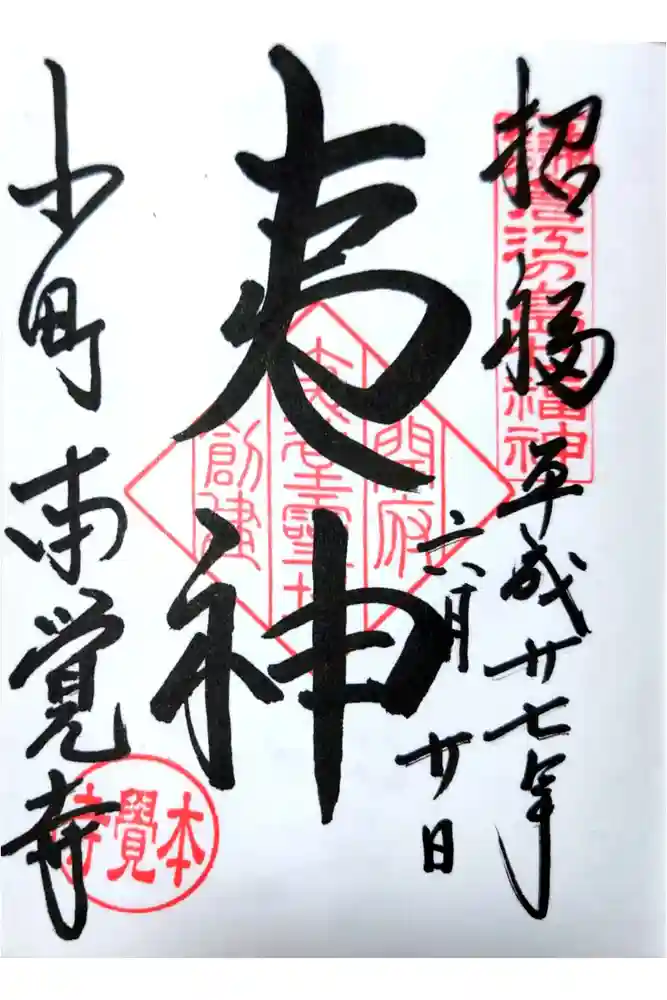 招福 平成廿七年
六月廿日
夷神
小町 本覚寺
鎌倉江の島七福神
開府
創建
本覺寺